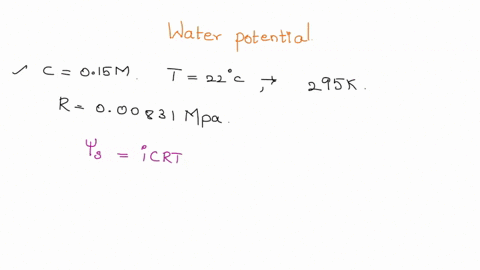 Water potential
✓ C = 0.15M. T = 22°C, → 295K.
R = 0.00831 Mpa.
Ψs = iCRT